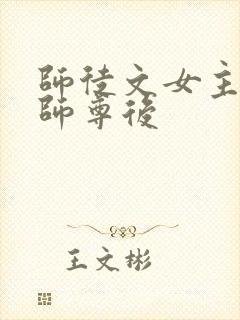 師徒文女主
師尊後
王文彬